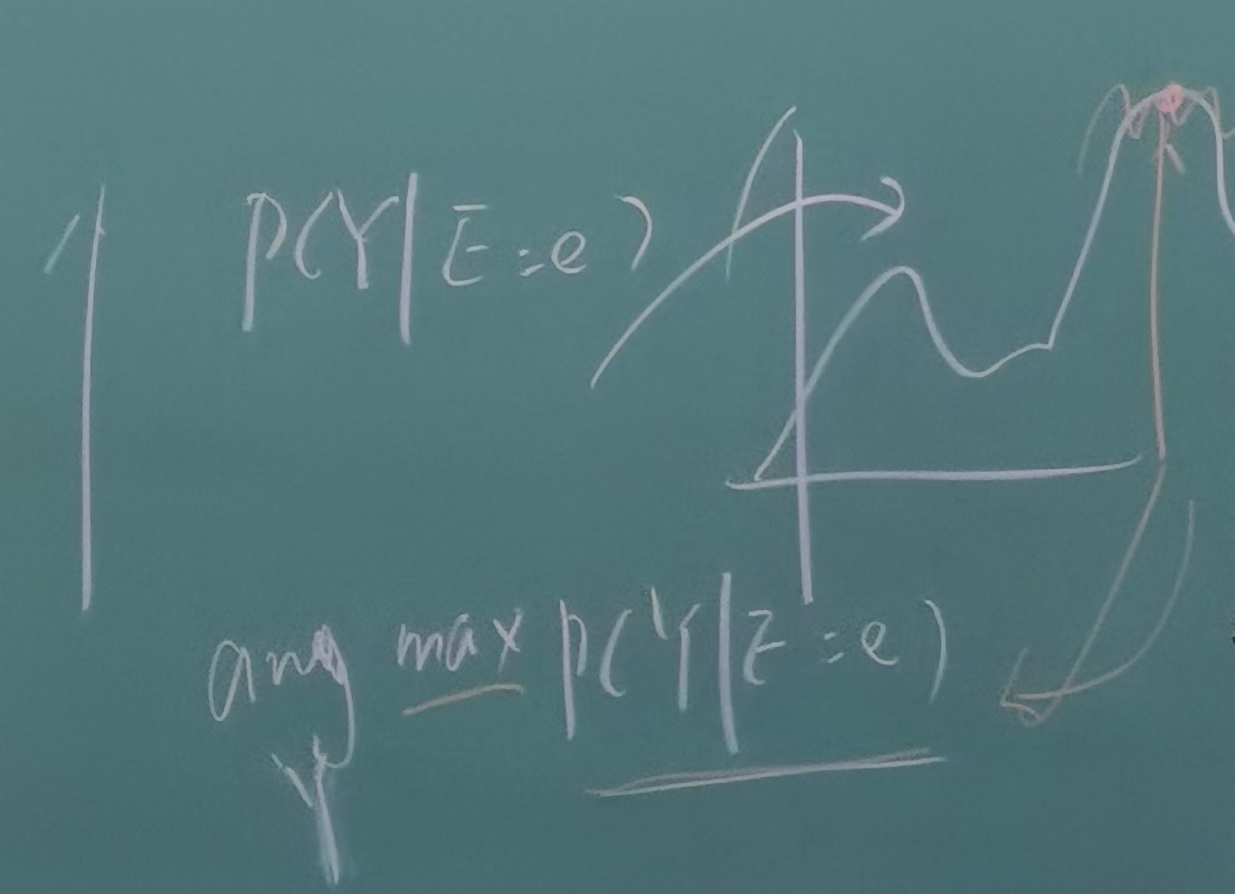 P(Y|E=e)
arg max P(Y|E=e)
Y